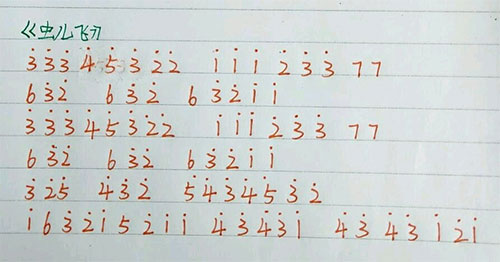 《虫儿飞》
3̇3̇3̇ 4̇ 5̇ 3̇ 2̇2̇ 1̇ 1̇ 1̇ 2̇ 3̇ 3̇ 7 7
6 3̇2̇ 6 3̇ 2̇ 6 3̇ 2̇ 1̇ 1̇
3̇ 3̇ 3̇ 4̇ 5̇ 3̇ 2̇2̇ 1̇ 1̇ 1̇ 2̇ 3̇ 3̇ 7 7
6 3̇2̇ 6 3̇ 2̇ 6 3̇ 2̇ 1̇ 1̇
3̇ 2̇5̇ 4̇ 3̇ 2̇ 5̇ 4̇ 3̇ 4̇ 5̇ 3̇ 2̇
1̇ 6 3̇ 2̇ 1̇ 5 2̇ 1̇ 1̇ 4̇ 3̇ 4̇ 3̇ 1̇ 4̇ 3̇ 4̇ 3̇ 1̇ 2̇ 1̇